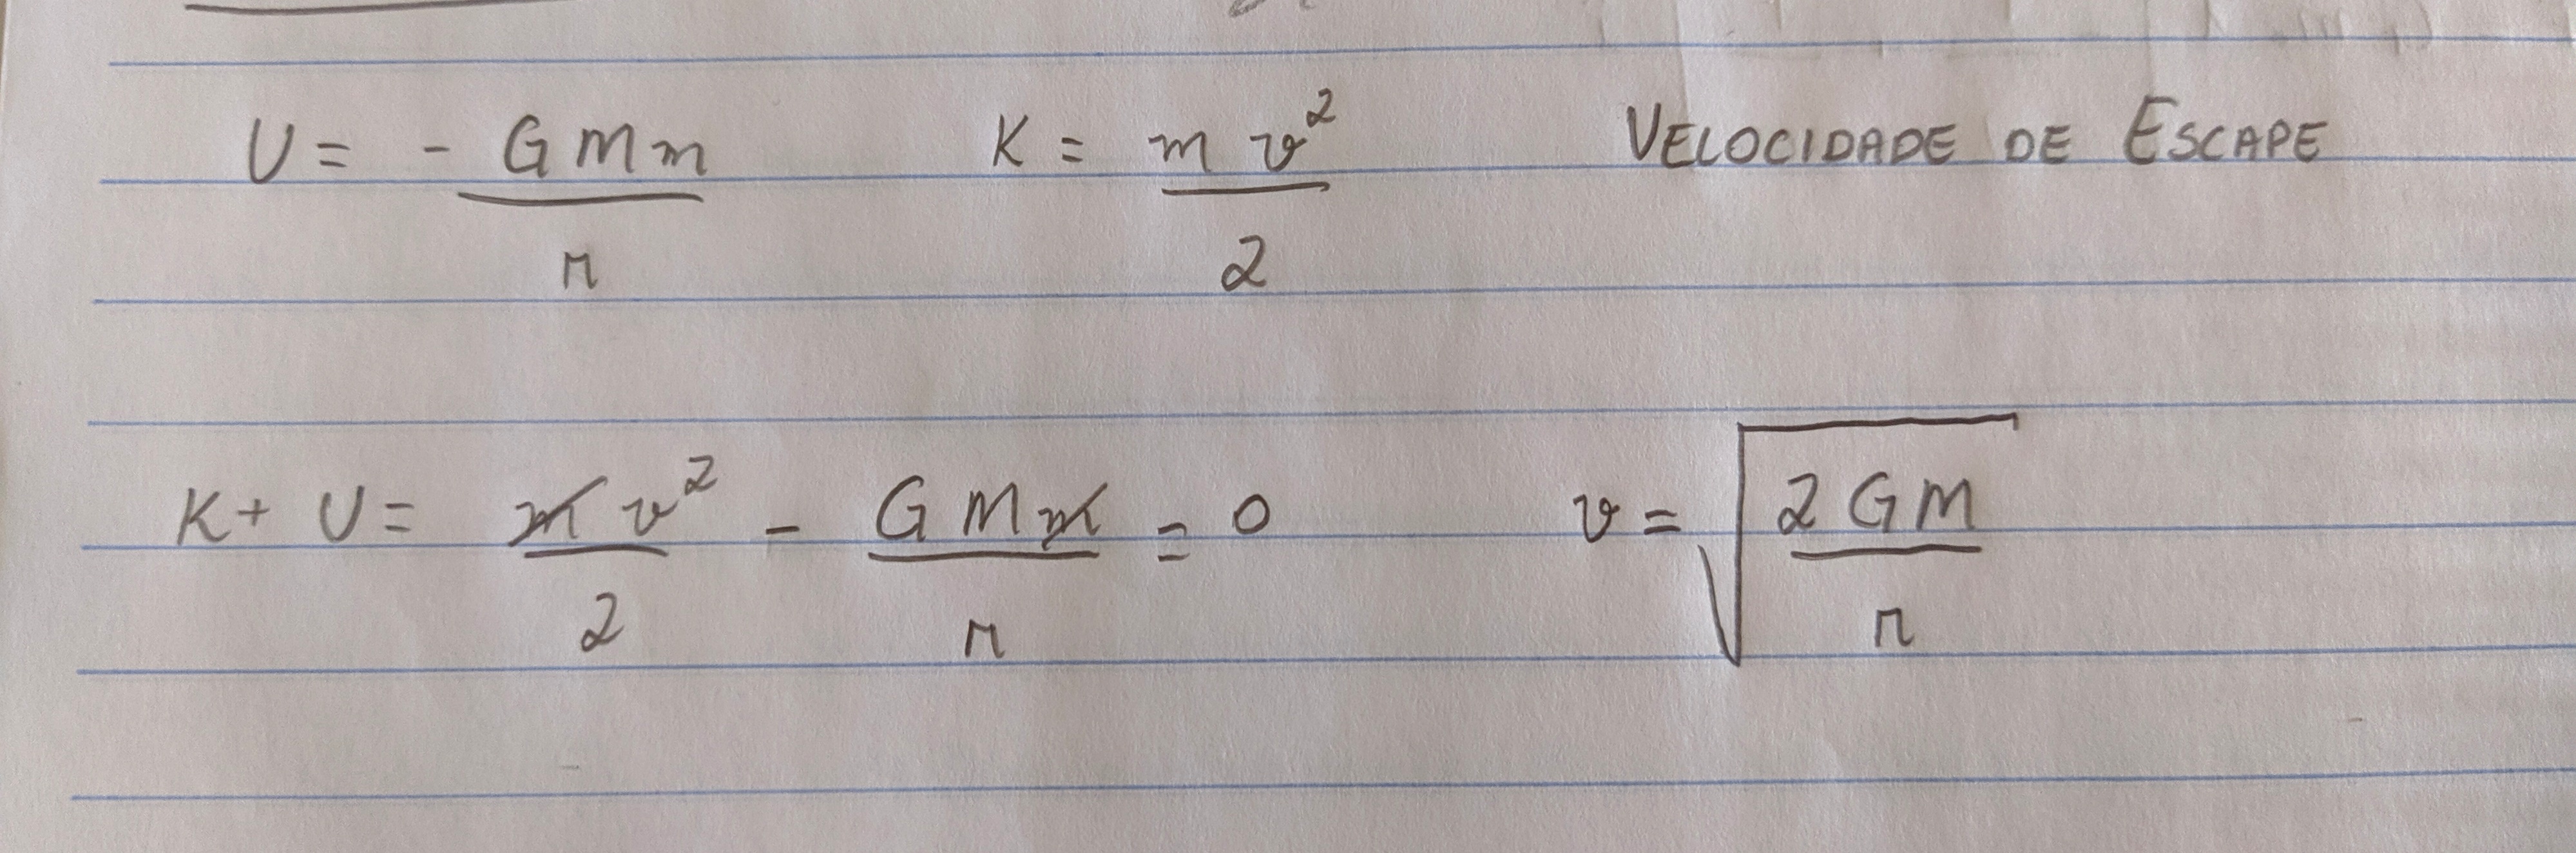 U = - GMm/r K = mv²/2 VELOCIDADE DE ESCAPE
K + U = mv²/2 - GMm/r = 0 v = √(2GM/r)